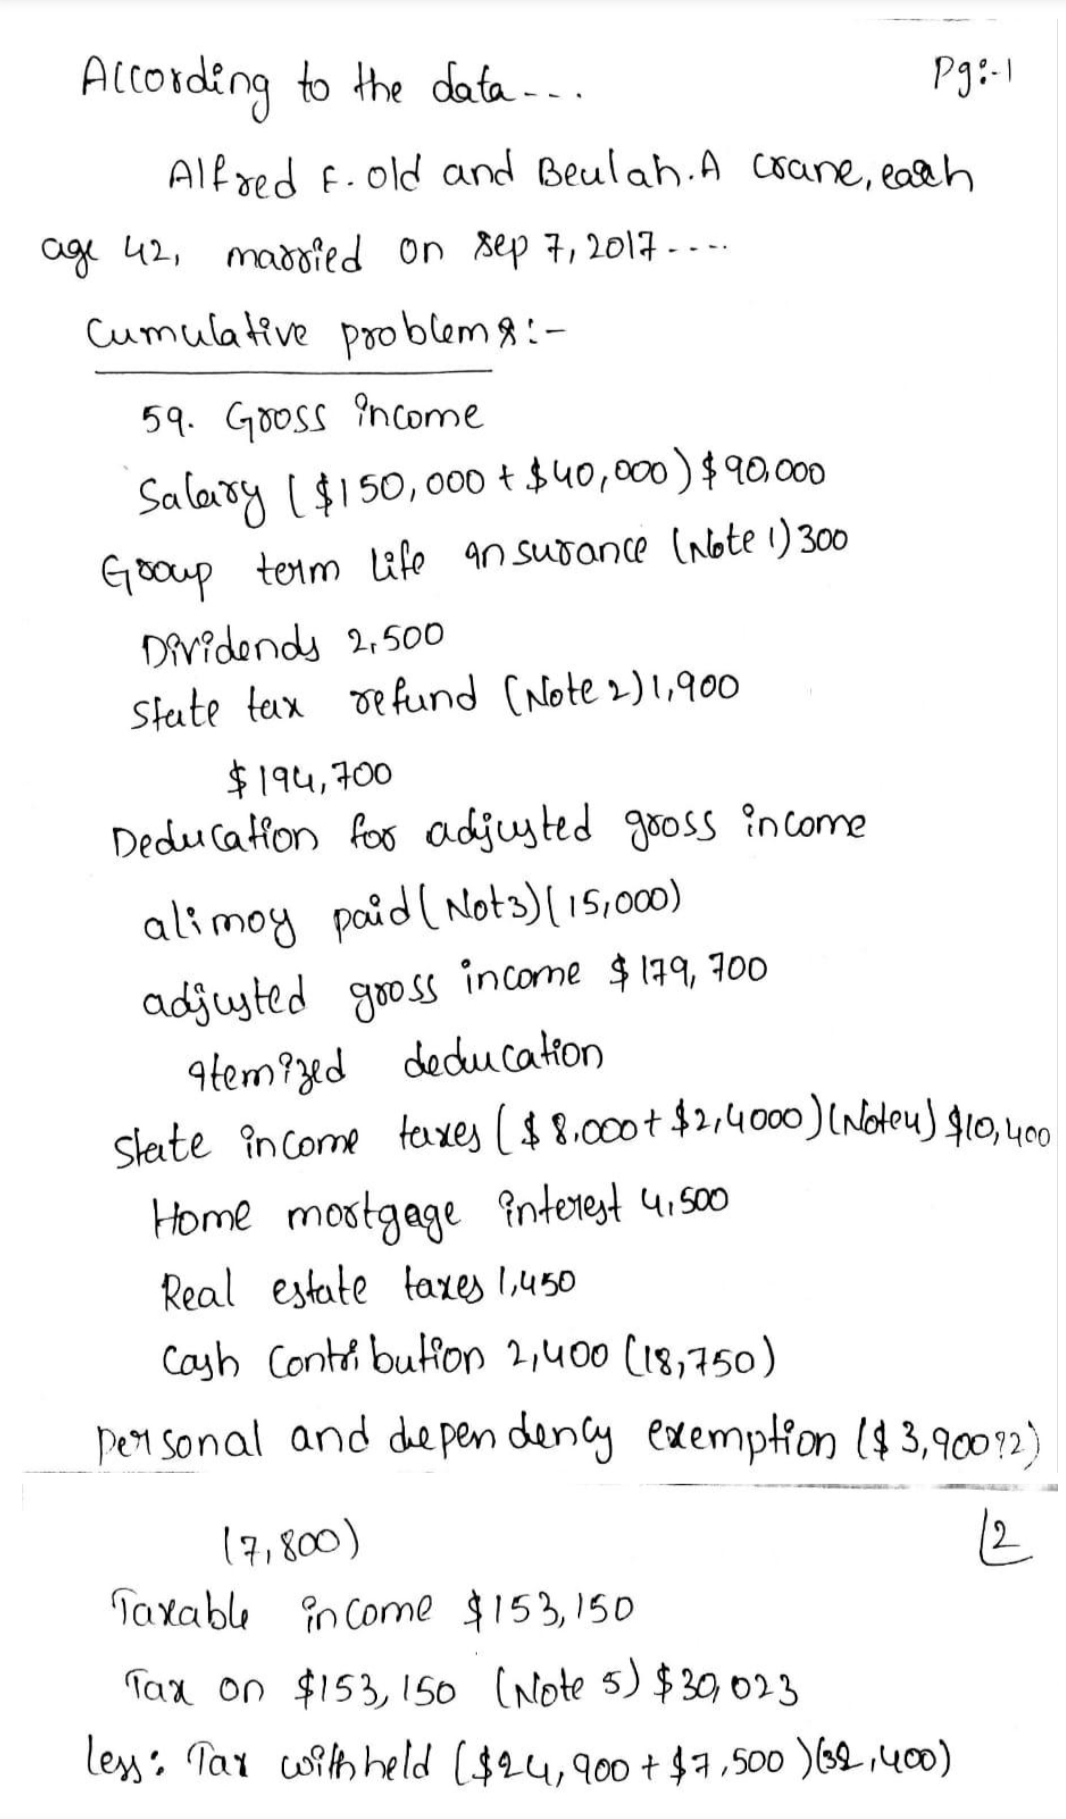 According to the data---.
Pg:-1
Alfred F. old and Beulah.A crane, each
age 42, married on sep 7, 2017----
Cumulative problems:-
59. Gross income
Salary ($150,000 + $40,000) $90,000
Group term life insurance (Note 1) 300
Dividends 2,500
State tax refund (Note 2) 1,900
$194,700
Deducation for adjusted gross income
alimoy paid (Not3) (15,000)
adjusted gross income $179,700
itemized deducation
State income taxes ($8,000 + $2,4000) (Note4) $10,400
Home mortgage interest 4,500
Real estate taxes 1,450
Cash Contribution 2,400 (18,750)
personal and dependency exemption ($3,900?2)
(7,800)
2
Taxable income $153,150
Tax on $153,150 (Note 5) $30,023
less: Tax withheld ($24,900 + $7,500) (32,400)